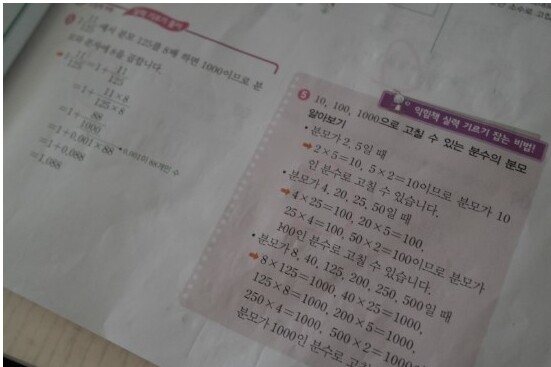 실력 기르기 풀이
1 11/125에서 분모 125를 8배 하면 1000이므로 분
모와 분자에 8을 곱합니다.
➡ 1 11/125=1+11/125
=1+11×8/125×8
=1+88/1000
=1+0.001×88
=1+0.088
=1.088
• 0.001이 88개인 수
약점책 실력 기르기 잡는 비법!
5 10, 100, 1000으로 고칠 수 있는 분수의 분모
알아보기
• 분모가 2, 5일 때
➡ 2×5=10, 5×2=10이므로 분모가 10
인 분수로 고칠 수 있습니다.
• 분모가 4, 20, 25, 50일 때
➡ 4×25=100, 20×5=100,
25×4=100, 50×2=100이므로 분모가
100인 분수로 고칠 수 있습니다.
• 분모가 8, 40, 125, 200, 250, 500일 때
➡ 8×125=1000, 40×25=1000,
125×8=1000, 200×5=1000,
250×4=1000, 500×2=1000
분모가 1000인 분수로 고칠